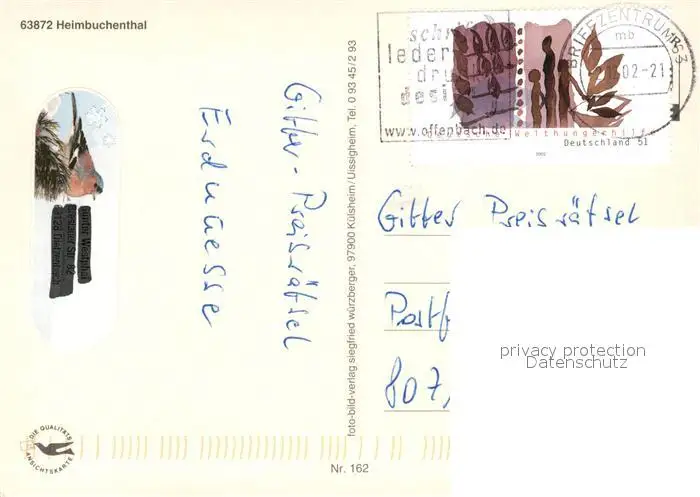 63872 Heimbuchenthal
Gitter-Preisrätsel
Erdnuesse
foto-bild-verlag siegfried würzberger, 97900 Külsheim/Uissigheim, Tel. 0 93 45/2 93
BRIEFZENTRUM 63
mb
02-21
www.offenbach.de
Welthungerhilfe
Deutschland 51
2002
Gitter Preisrätsel
Postf
807,
privacy protection
Datenschutz
DIE QUALITÄTS
ANSICHTSKARTE
Nr. 162